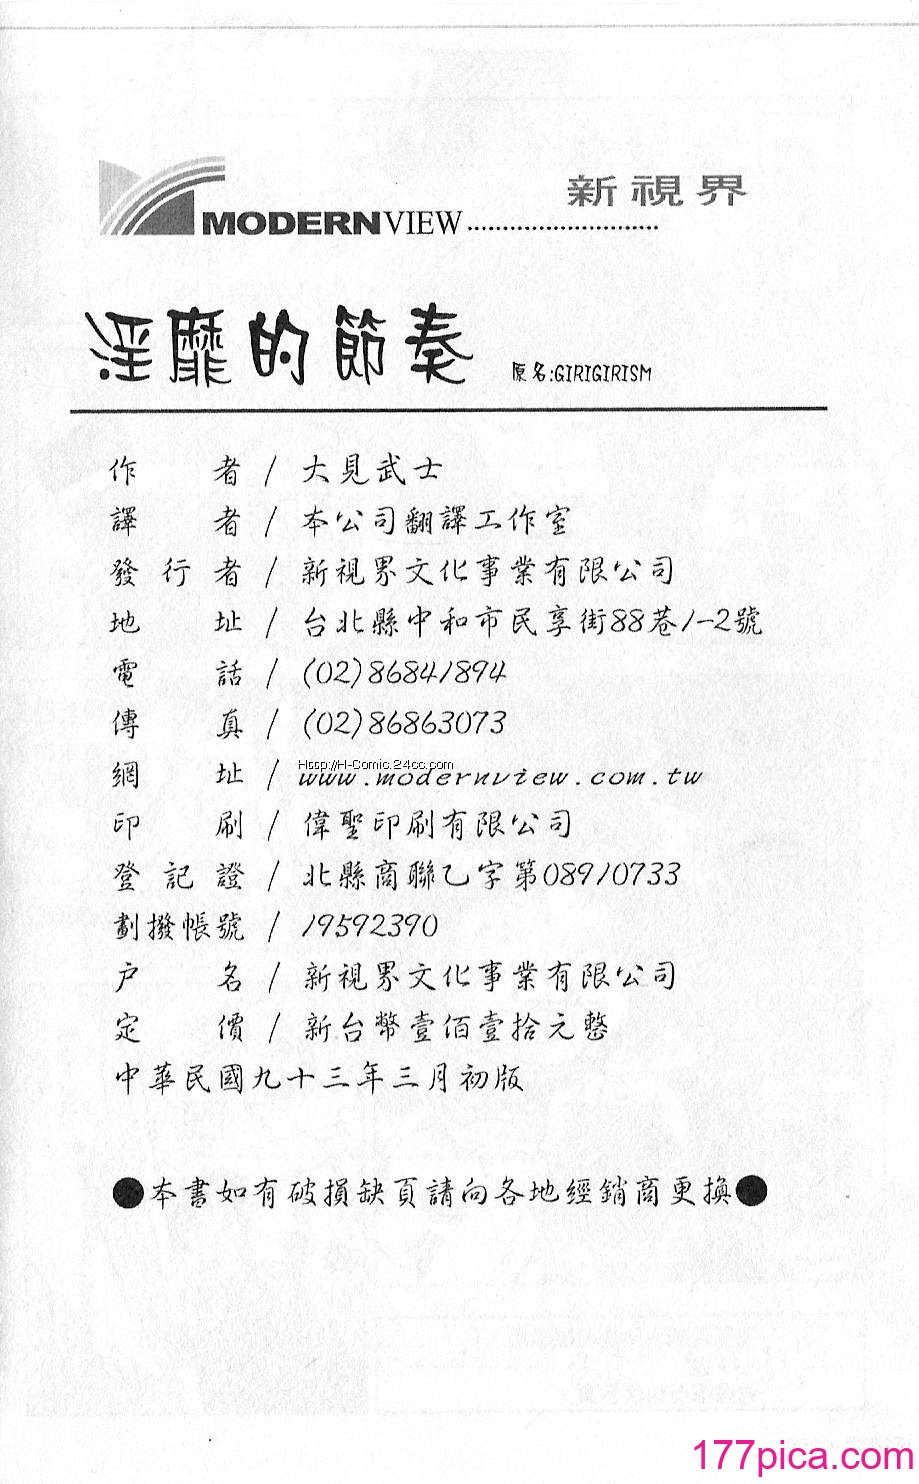 新視界
MODERNVIEW
淫靡的節奏 原名:GIRIGIRISM
作者/大見武士
譯者/本公司翻譯工作室
發行者/新視界文化事業有限公司
地址/台北縣中和市民享街88巷1-2號
電話/(02)86841894
傳真/(02)86863073
Hssp://H-Comic.24cc.com
網址/www.modernview.com.tw
印刷/偉聖印刷有限公司
登記證/北縣商聯乙字第08910733
劃撥帳號/19592390
戶名/新視界文化事業有限公司
定價/新台幣壹佰壹拾元整
中華民國九十三年三月初版
●本書如有破損缺頁請向各地經銷商更換●
177pica.com